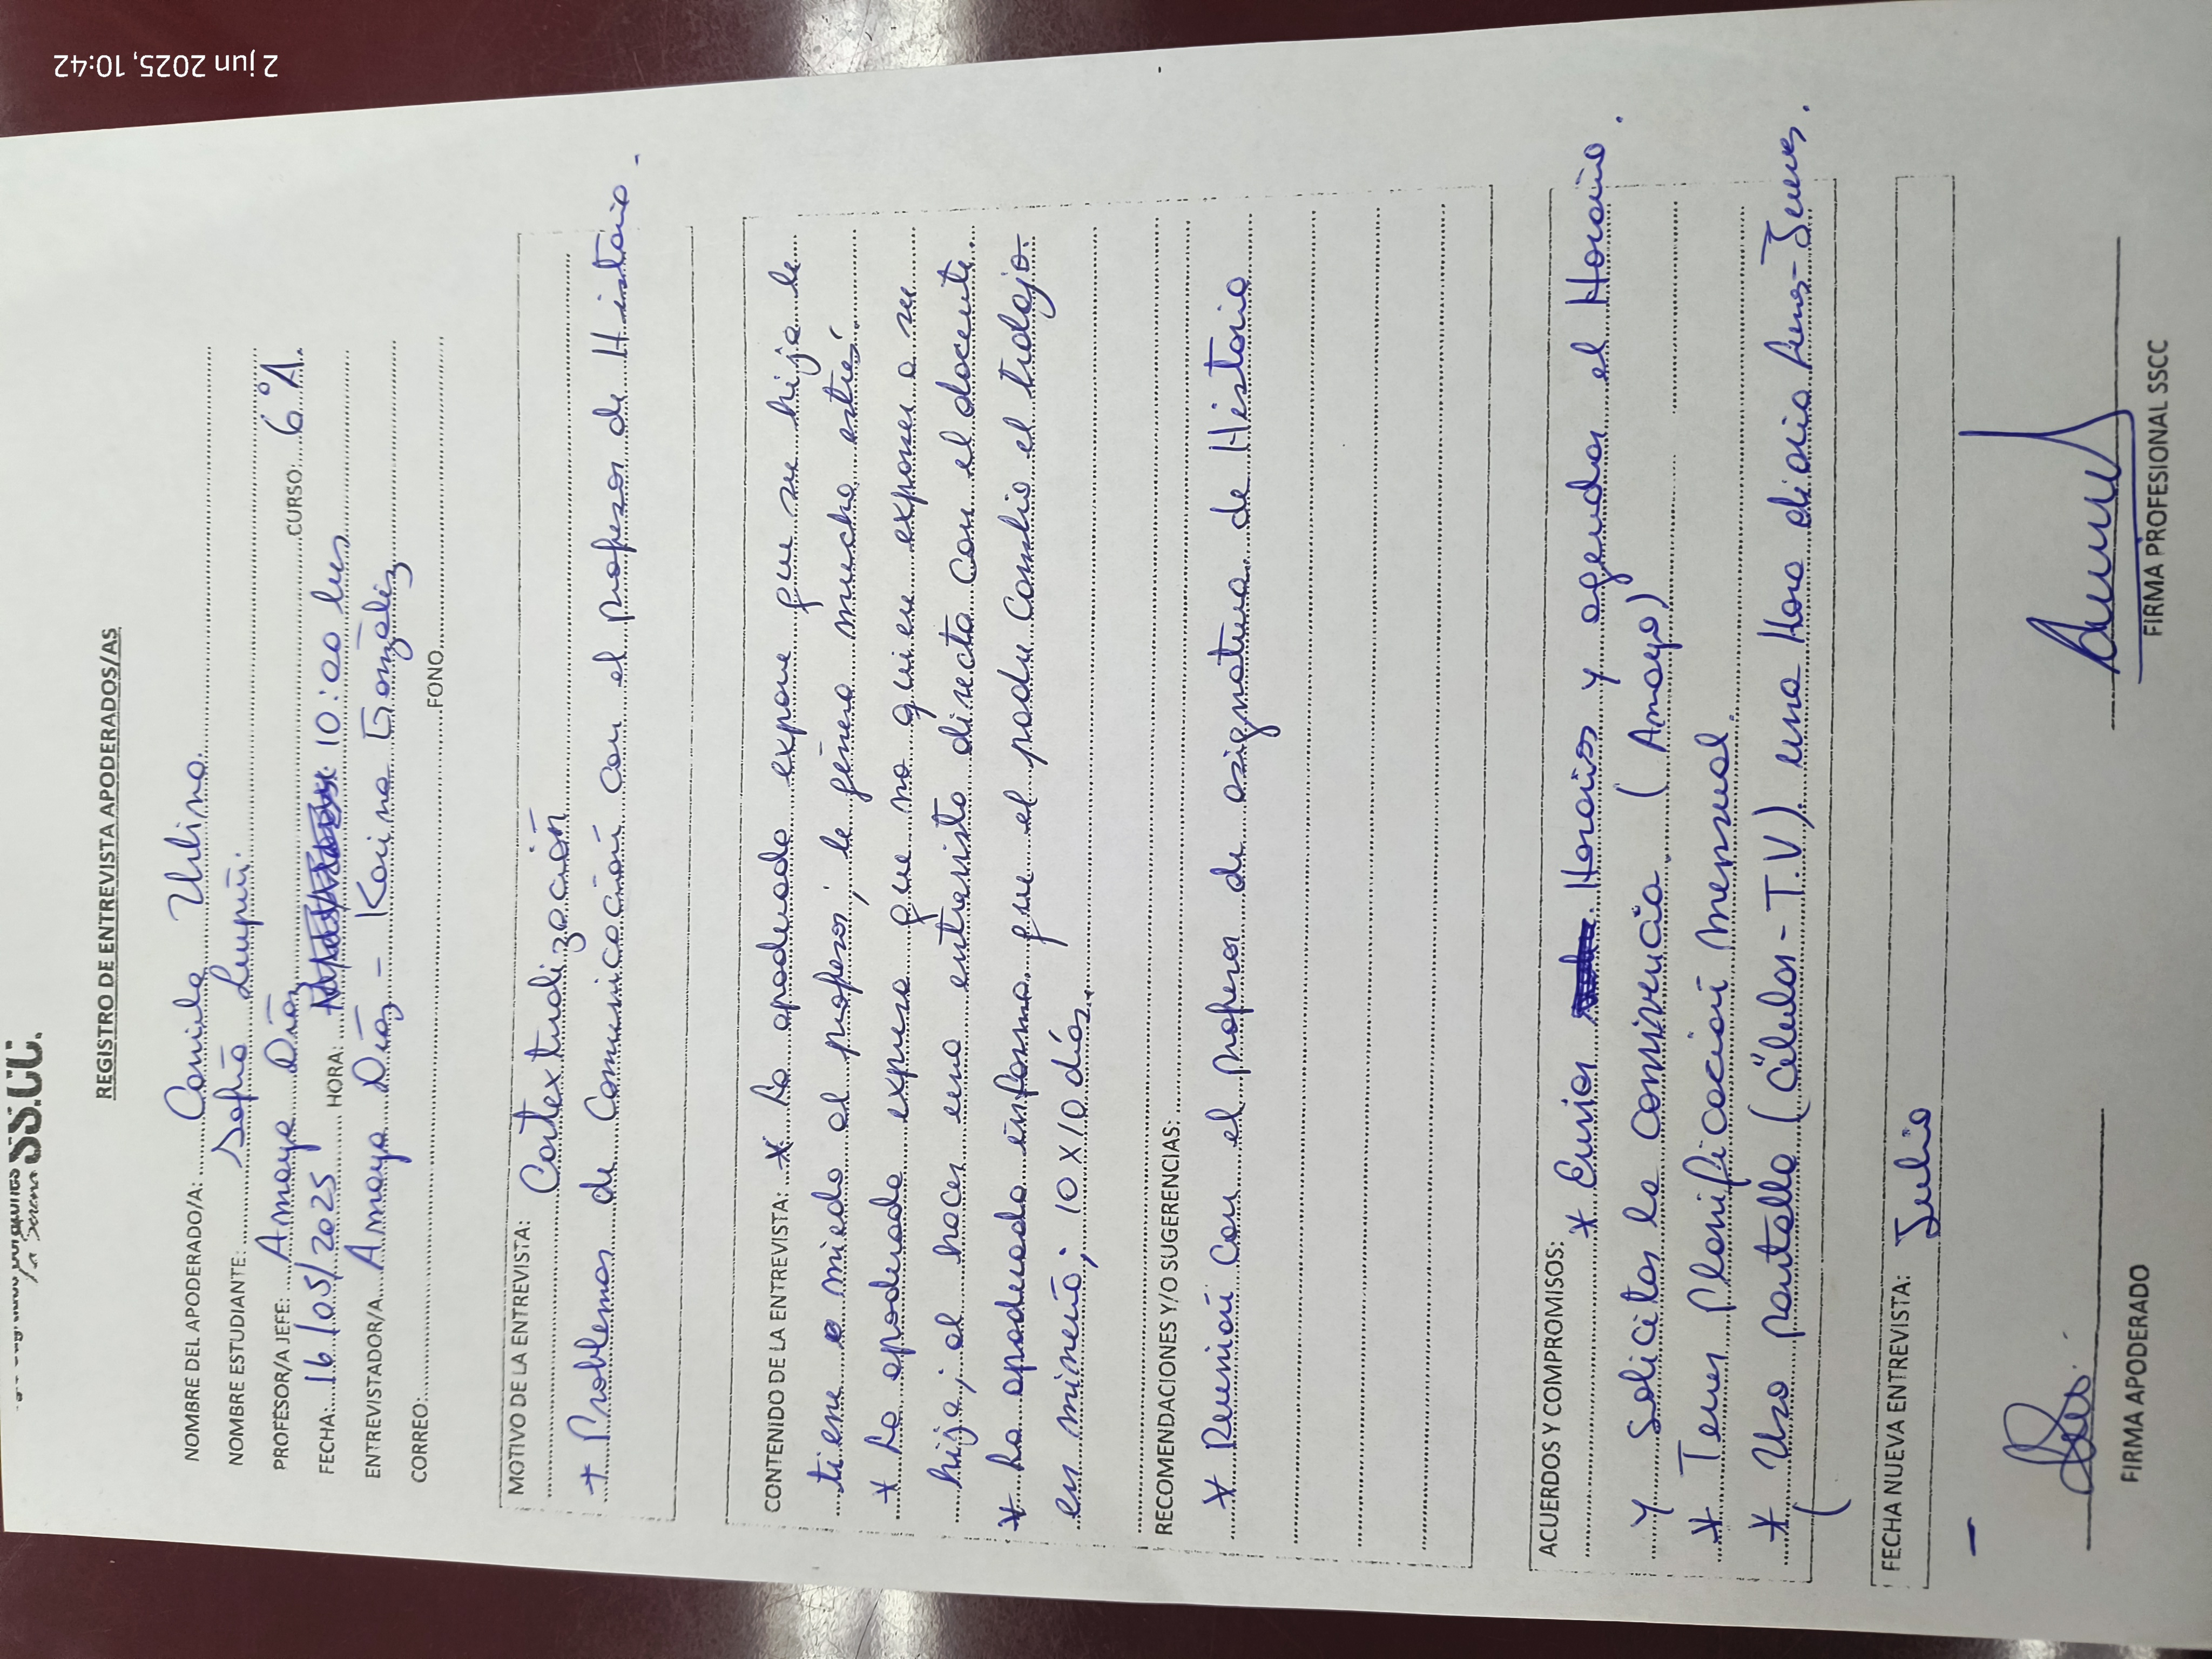 2 jun 2025, 10:42
La Serena SS.CC.
REGISTRO DE ENTREVISTA APODERADOS/AS
NOMBRE DEL APODERADO/A: Camila Urbina.
NOMBRE ESTUDIANTE: Sofia
PROFESOR/A JEFE: Amaya Díaz CURSO 6°A.
FECHA: 16/05/2025 HORA: 10:00 hrs
ENTREVISTADOR/A Amaya Díaz - Karina González
CORREO: FONO
MOTIVO DE LA ENTREVISTA: Contextualización
* Problemas de Comunicación con el profesor de Historia.
CONTENIDO DE LA ENTREVISTA: * La apoderada expone que su hija le
tiene miedo al profesor, le género mucho estrés.
* La apoderada expresa que no quiere exponer a su
hija; al hacer una entrevista directa con el docente.
* La apoderada informa que el padre cambio el trabajo
en minería; 10x10 días.
RECOMENDACIONES Y/O SUGERENCIAS:
* Reunión con el profesor de asignatura de Historia
ACUERDOS Y COMPROMISOS: * Enviar Horarios y agendar el Horario.
y solicitar la convivencia. (Amaya)
* Tener Planificación mensual.
* Uso pantalla (Célular - T.V) una Hora diaria Lunes-Jueves.
FECHA NUEVA ENTREVISTA: Julio
FIRMA APODERADO
FIRMA PROFESIONAL SSCC